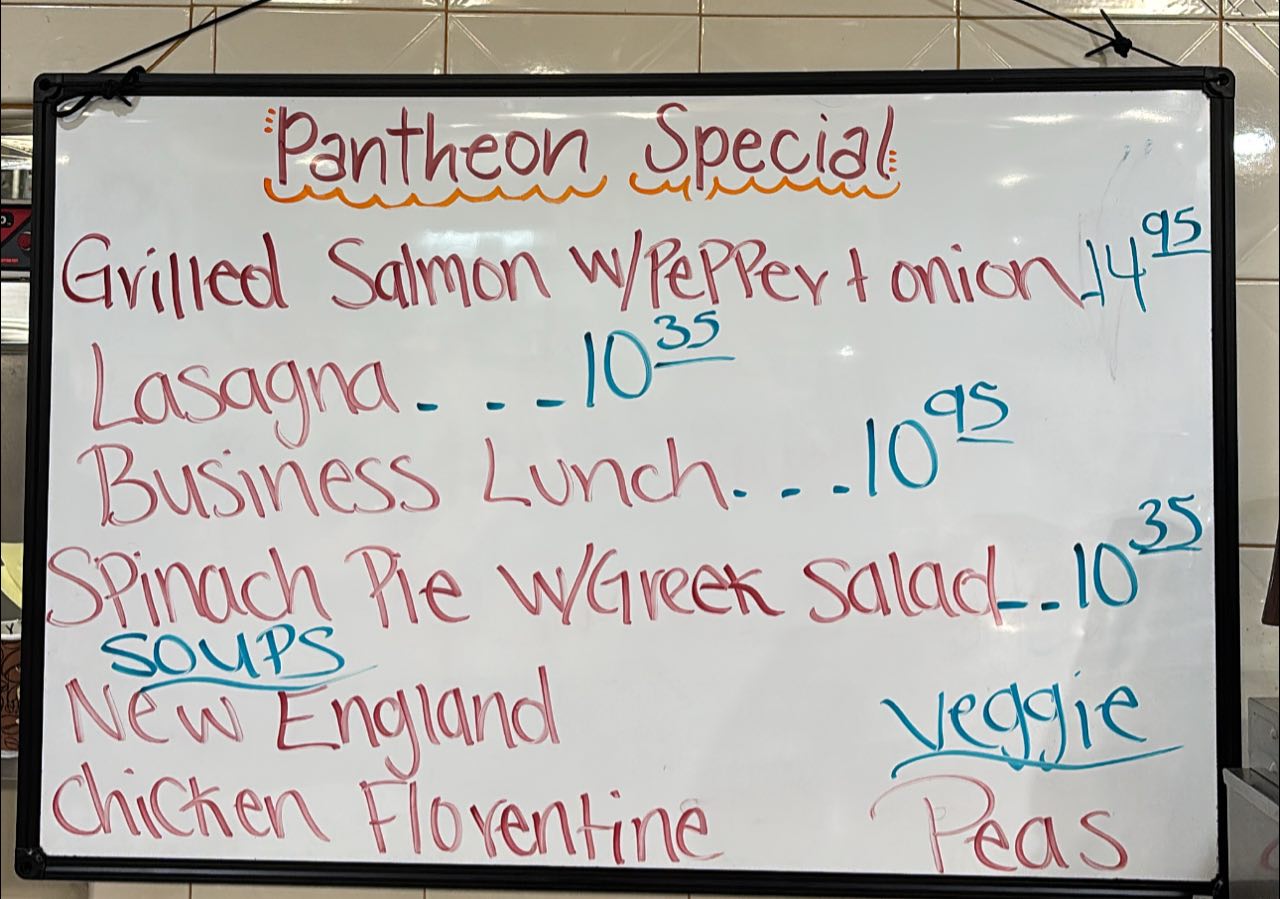 Pantheon Special
Grilled Salmon w/Pepper + onion 14 95
Lasagna. - - - 10 35
Business Lunch. - - - 10 95
Spinach Pie w/Greek Salad - - - 10 35
SOUPS
New England
veggie
Chicken Florentine
Peas